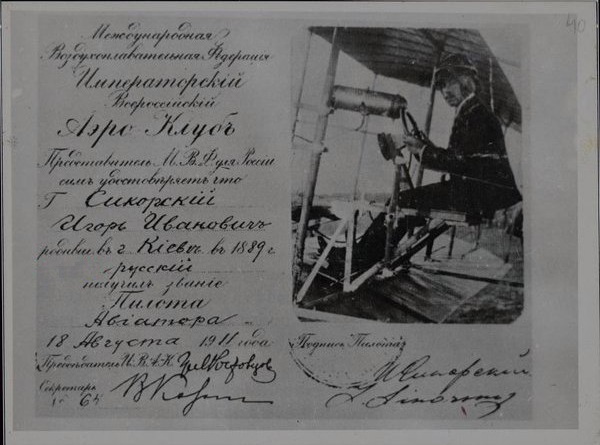 Международная
Воздухоплавательная Федерацiя
Императорскiй
Всероссiйскiй
Аэро Клубъ
Представитель М.В.Ф. для Россiи
симъ удостовѣряетъ что
Г Сикорскiй
Игорь Ивановичъ
родивш. въ г. Кiевѣ въ 1889 г.
русскiй
получилъ званiе
Пилота
Авiатора
18 Августа 1911 года
Предсѣдатель И.В.А.К.
Секретарь
№ 64
Подпись Пилота:
И Сикорскiй
40